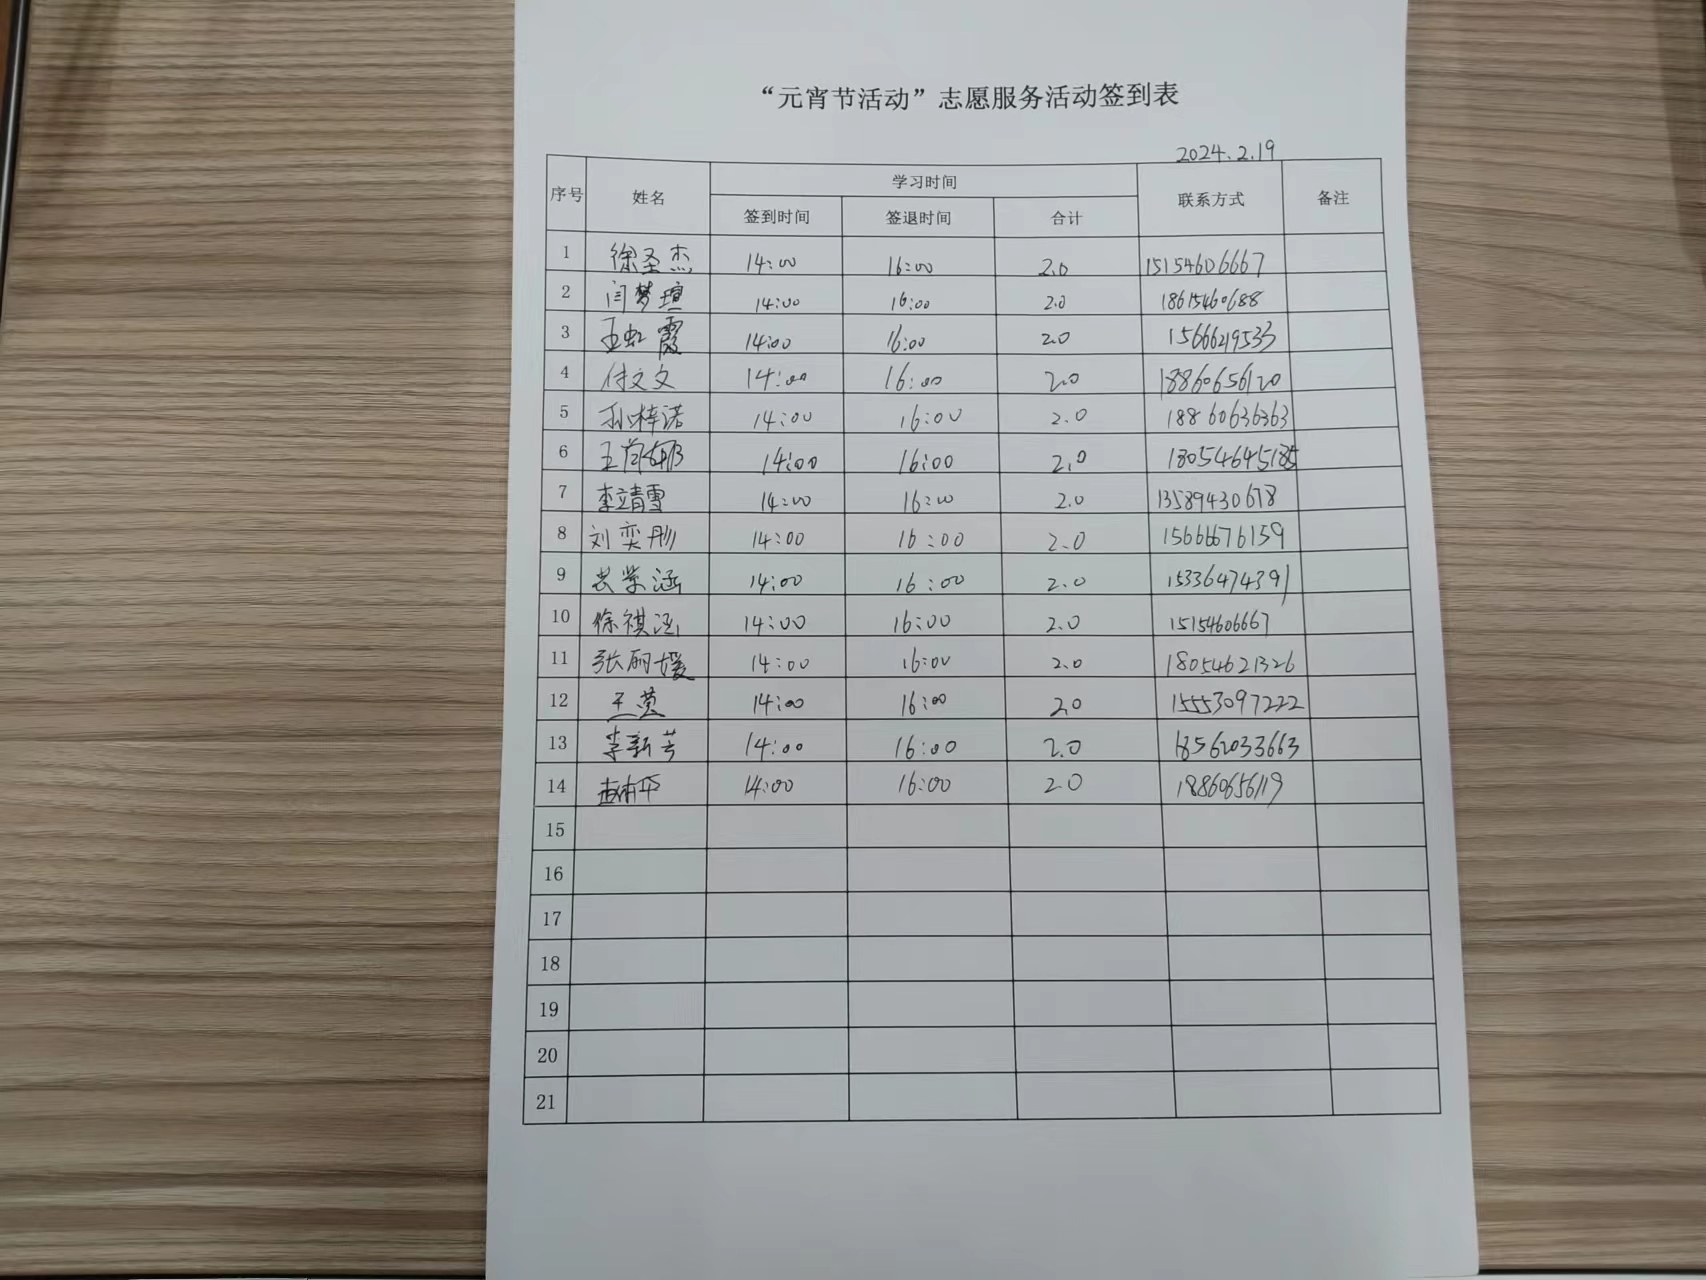 “元宵节活动”志愿服务活动签到表
2024.2.19
序号 姓名 学习时间 联系方式 备注
签到时间 签退时间 合计
1 徐圣杰 14:00 16:00 2.0 15154606667
2 闫梦瑄 14:00 16:00 2.0 18615460688
3 王虹霞 14:00 16:00 2.0 15666219533
4 付文文 14:00 16:00 2.0 18860656120
5 孙梓诺 14:00 16:00 2.0 18860636363
6 王 14:00 16:00 2.0 18054645185
7 李靖雪 14:00 16:00 2.0 13589430678
8 刘奕彤 14:00 16:00 2.0 15666676159
9 紫涵 14:00 16:00 2.0 15336474391
10 徐祺涵 14:00 16:00 2.0 15154606667
11 张丽媛 14:00 16:00 2.0 18054621326
12 王莹 14:00 16:00 2.0 15553097222
13 李新芳 14:00 16:00 2.0 18562033663
14 14:00 16:00 2.0 18860656119
15
16
17
18
19
20
21